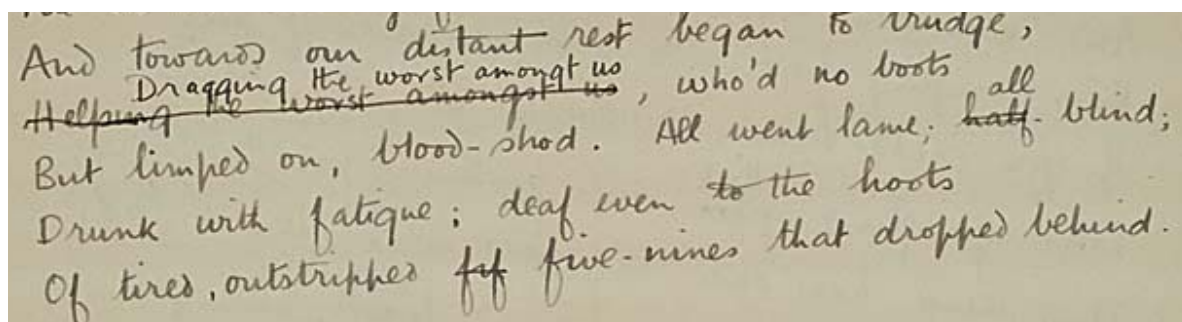 And towards our distant rest began to trudge,
Dragging the worst amongt us
Helping the worst amongst us, who'd no boots
But limped on, blood-shod. All went lame; half- all blind;
Drunk with fatigue; deaf even to the hoots
Of tired, outstripped fif five-nines that dropped behind.